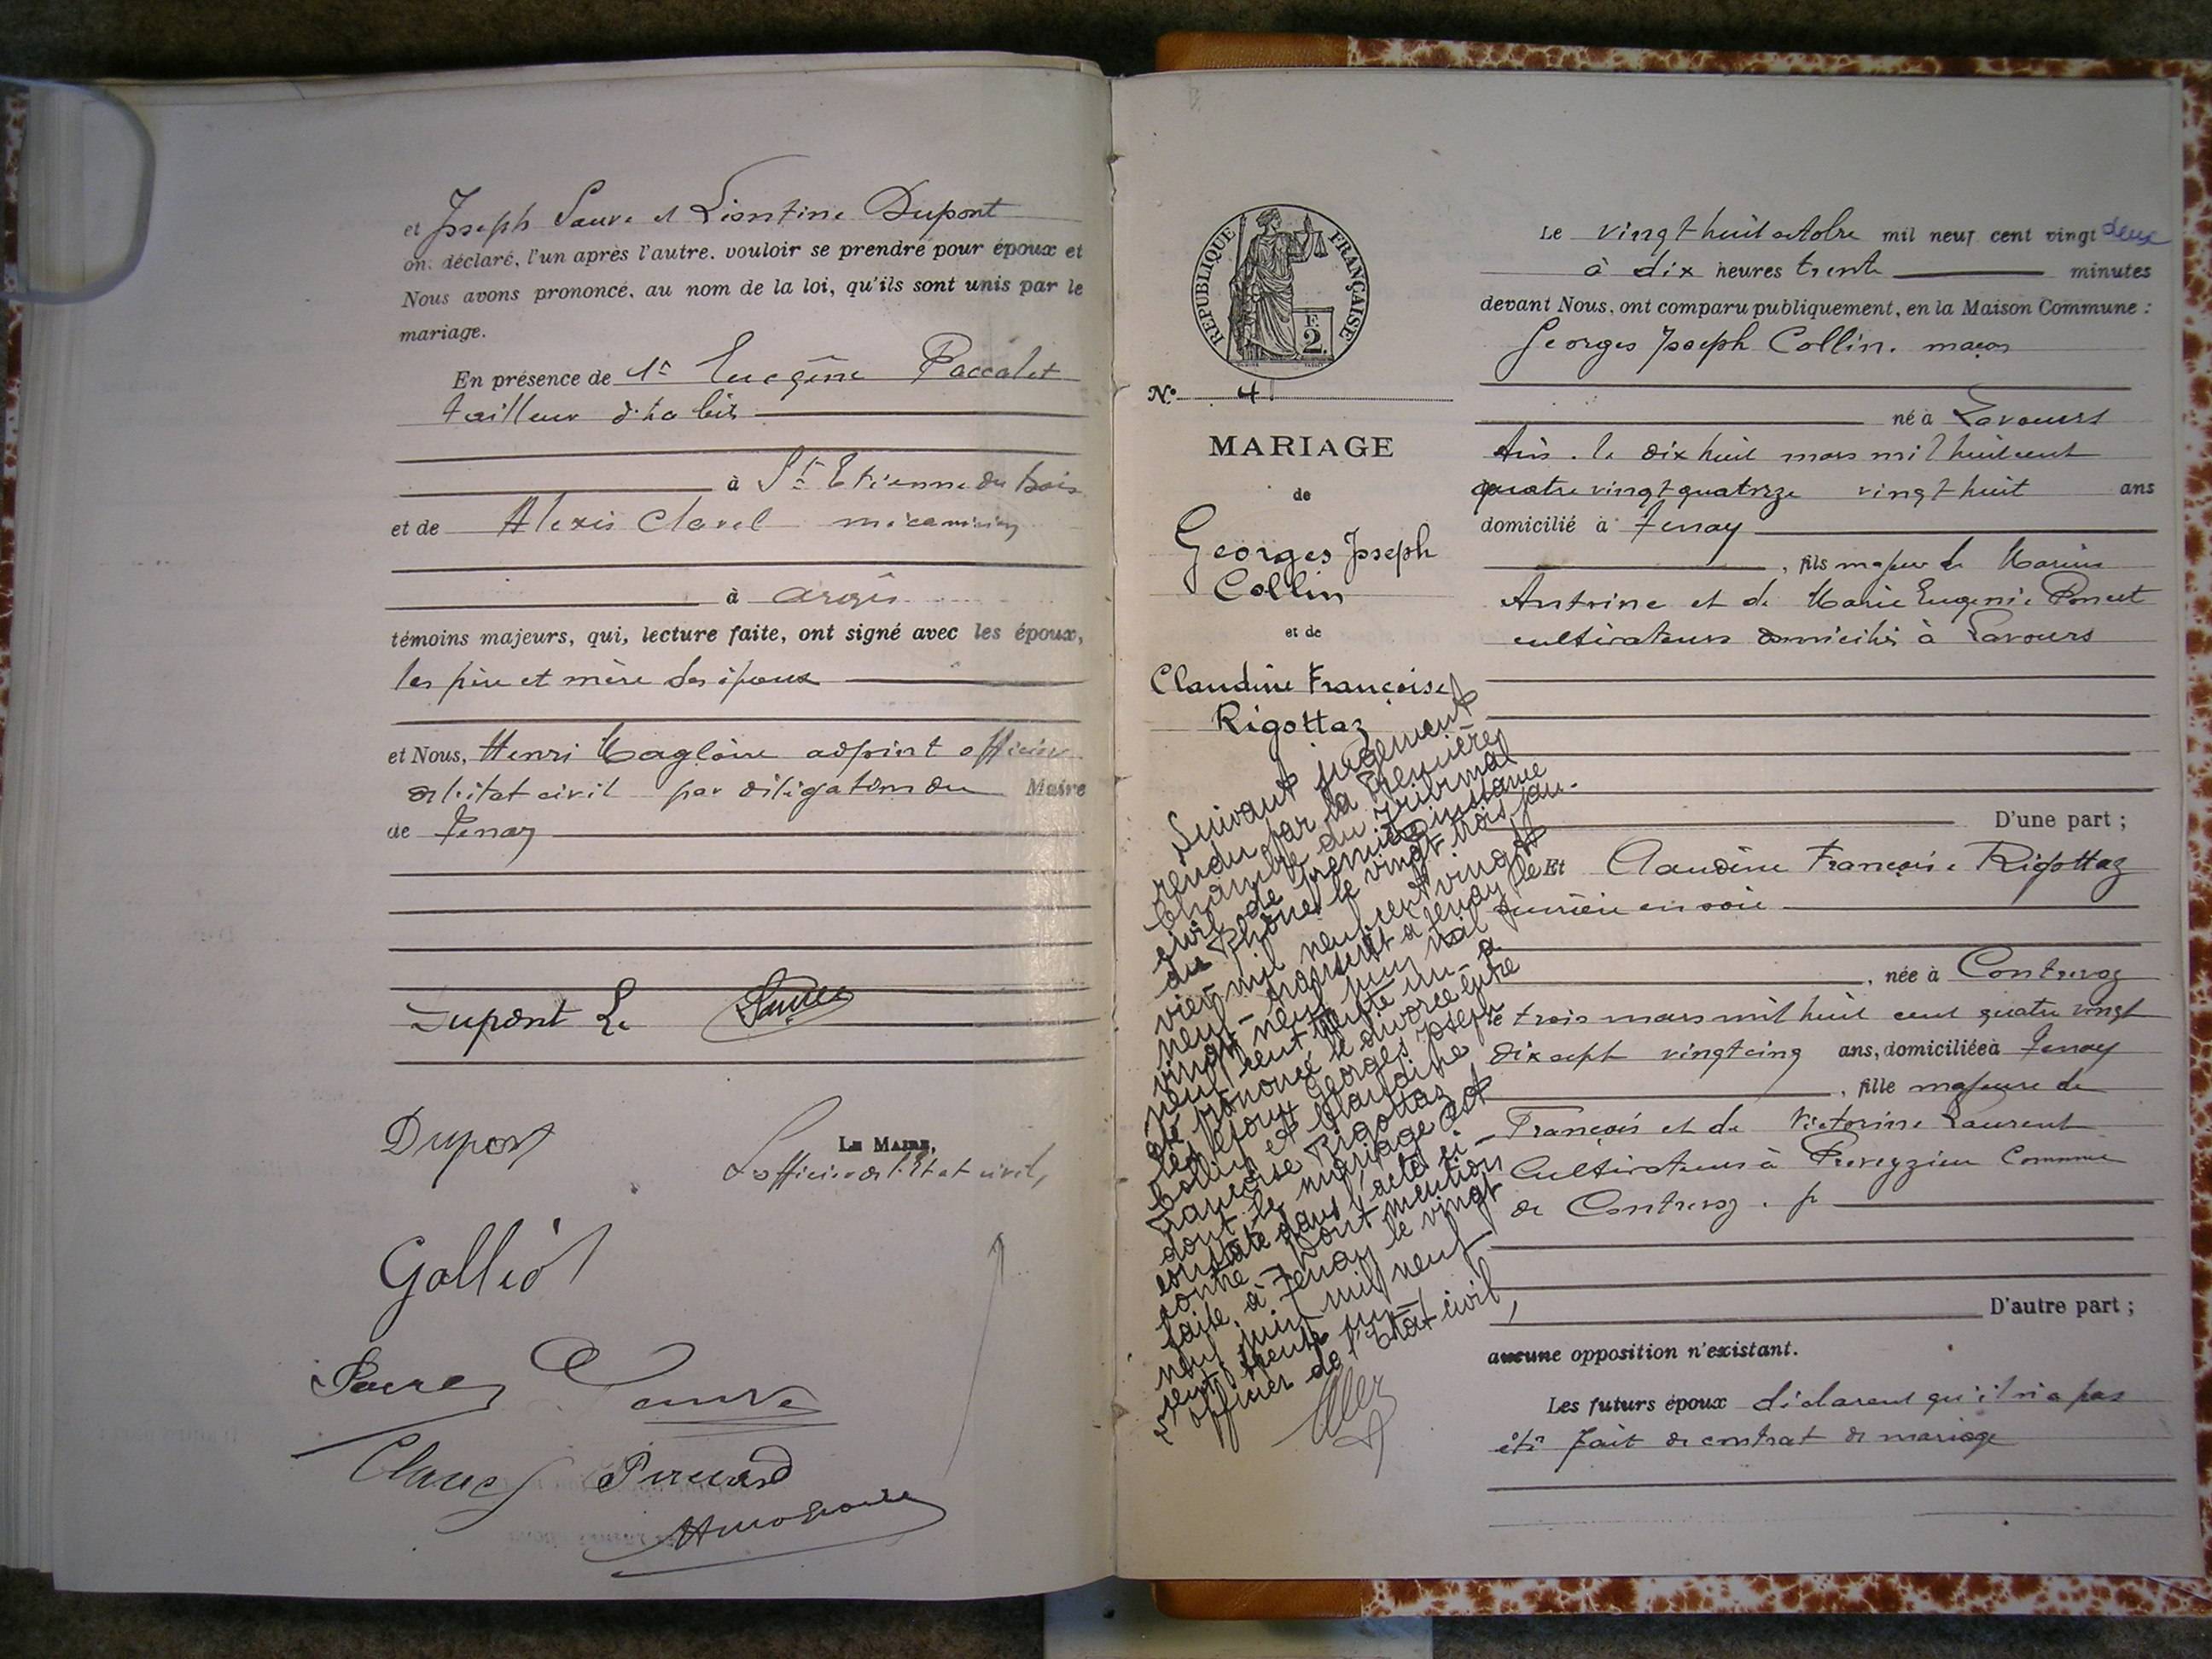 et Joseph Sauve et Léontine Dupont
ont déclaré, l'un après l'autre, vouloir se prendre pour époux et
Nous avons prononcé, au nom de la loi, qu'ils sont unis par le
mariage.
En présence de 1° Eugène Paccalet
tailleur d'habits
à St Etienne du bois
et de Alexis Clavel mécanicien
à Argis
témoins majeurs, qui, lecture faite, ont signé avec les époux,
les père et mère des époux
et Nous, Henri Magloire adjoint officier
de l'état civil par délégation du Maire
de Tenay
Dupont Le Sauve
Dupont
LE MAIRE,
L'officier de l'Etat civil,
Galliot
Sauve
Clavel
RÉPUBLIQUE FRANÇAISE
F. 2.
N° 41
MARIAGE
de
Georges Joseph
Collin
et de
Claudine Françoise
Rigottaz
Suivant jugement
rendu par la Première
Chambre du Tribunal
civil de première instance
du Rhône le vingt trois jan-
vier mil neuf cent vingt
neuf - transcrit à Tenay le
vingt neuf juin mil
neuf cent trente un - a
été prononcé le divorce entre
les époux Georges Joseph
Collin et Claudine
Françoise Rigottaz
dont le mariage est
constaté dans l'acte ci-
contre - Dont mention
faite à Tenay le vingt
neuf juin mil neuf
cent trente un -
L'officier de l'Etat civil,
Le vingt huit octobre mil neuf cent vingt deux
à dix heures trente minutes
devant Nous, ont comparu publiquement, en la Maison Commune :
Georges Joseph Collin, maçon
né à Lavours
Ain, le dix huit mars mil huit cent
quatre vingt quatorze vingt huit ans
domicilié à Tenay
, fils majeur de Marius
Antoine et de Marie Eugénie Poncet
cultivateurs domiciliés à Lavours
D'une part ;
Et Claudine Françoise Rigottaz
ouvrière en soie
, née à Contrevoz
le trois mars mil huit cent quatre vingt
dix sept vingt cinq ans, domiciliée à Tenay
, fille majeure de
François et de Victorine Laurent
Cultivateurs à Preveyzieu Commune
de Contrevoz
D'autre part ;
aucune opposition n'existant.
Les futurs époux déclarent qu'il n'a pas
été fait de contrat de mariage